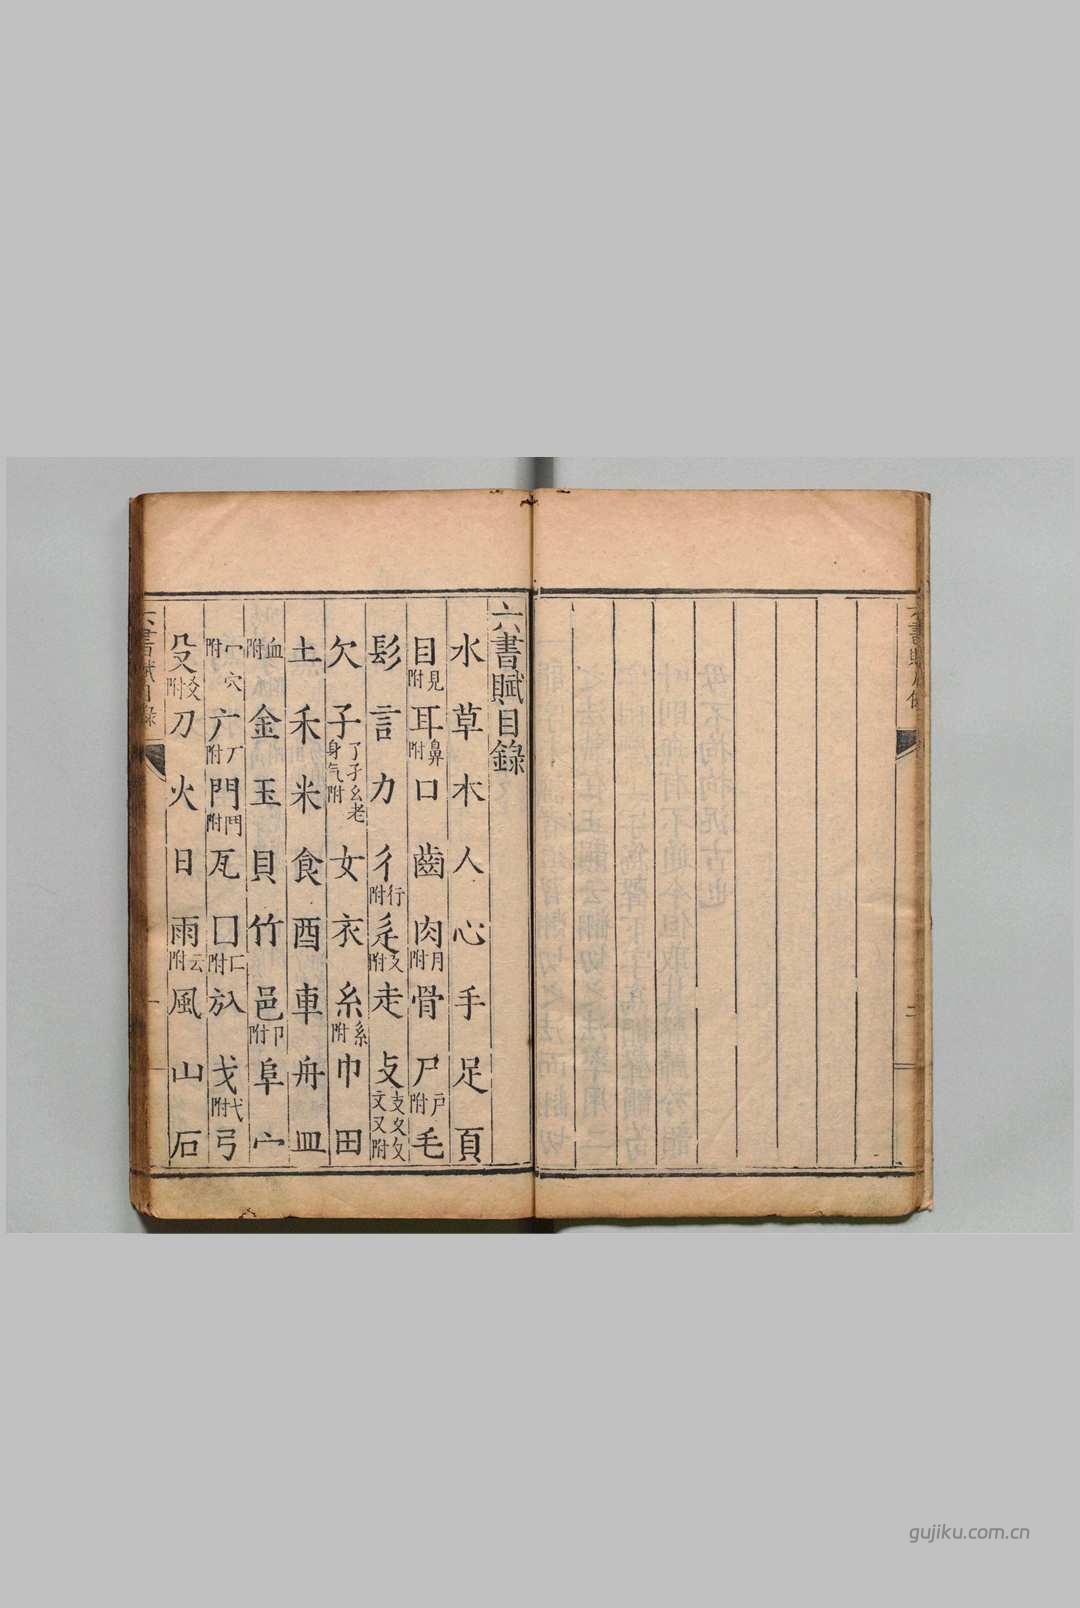 六書賦目錄
水 草 木 人 心 手 足 頁
目見附 耳鼻附 口 齒 肉月附 骨 尸戶附 毛
髟 言 力 彳行附 辵廴附 走 攴支夊攵文又附
欠 子了孑幺老身气附 女 衣 糸系附 巾 田
土 禾 米 食 酉 車 舟 皿
血附 金 玉 貝 竹 邑卩附 阜 宀
冖穴附 广厂附 門鬥附 瓦 囗匚附 㫃 戈弋附 弓
殳爻附 刀 火 日 雨云附 風 山 石
gujiku.com.cn